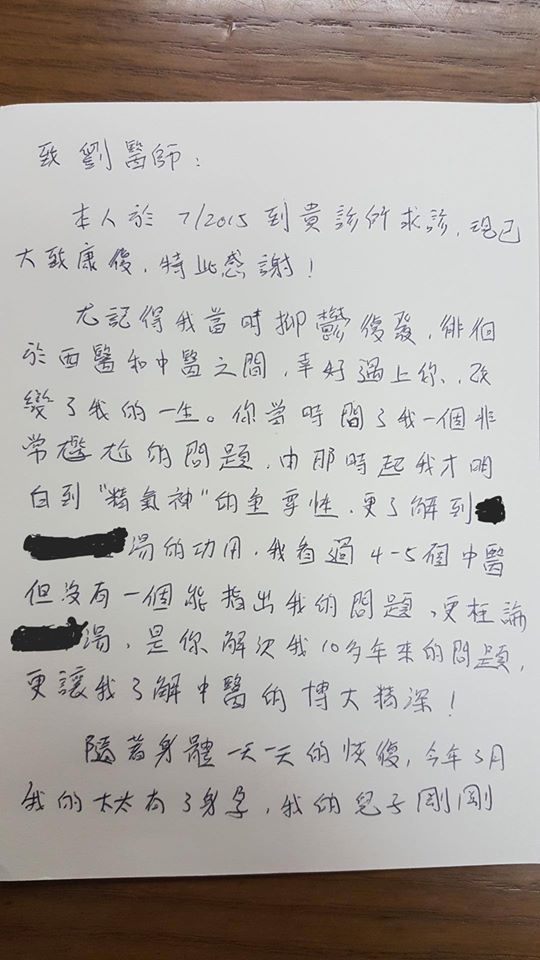 致劉醫師：
本人於 7/2015 到貴診所求診，現已
大致康復，特此感謝！
尤記得我當時抑鬱復發，徘徊
於西醫和中醫之間，幸好遇上你，改
變了我的一生。你當時問了我一個非
常尷尬的問題，由那時起我才明
白到"精氣神"的重要性，更了解到
湯的功用，我看過 4-5個中醫
但沒有一個能指出我的問題，更枉論
湯，是你解決我10多年來的問題，
更讓我了解中醫的博大精深！
隨著身體一天一天的恢復，今年3月
我的太太有了身孕，我的兒子剛剛